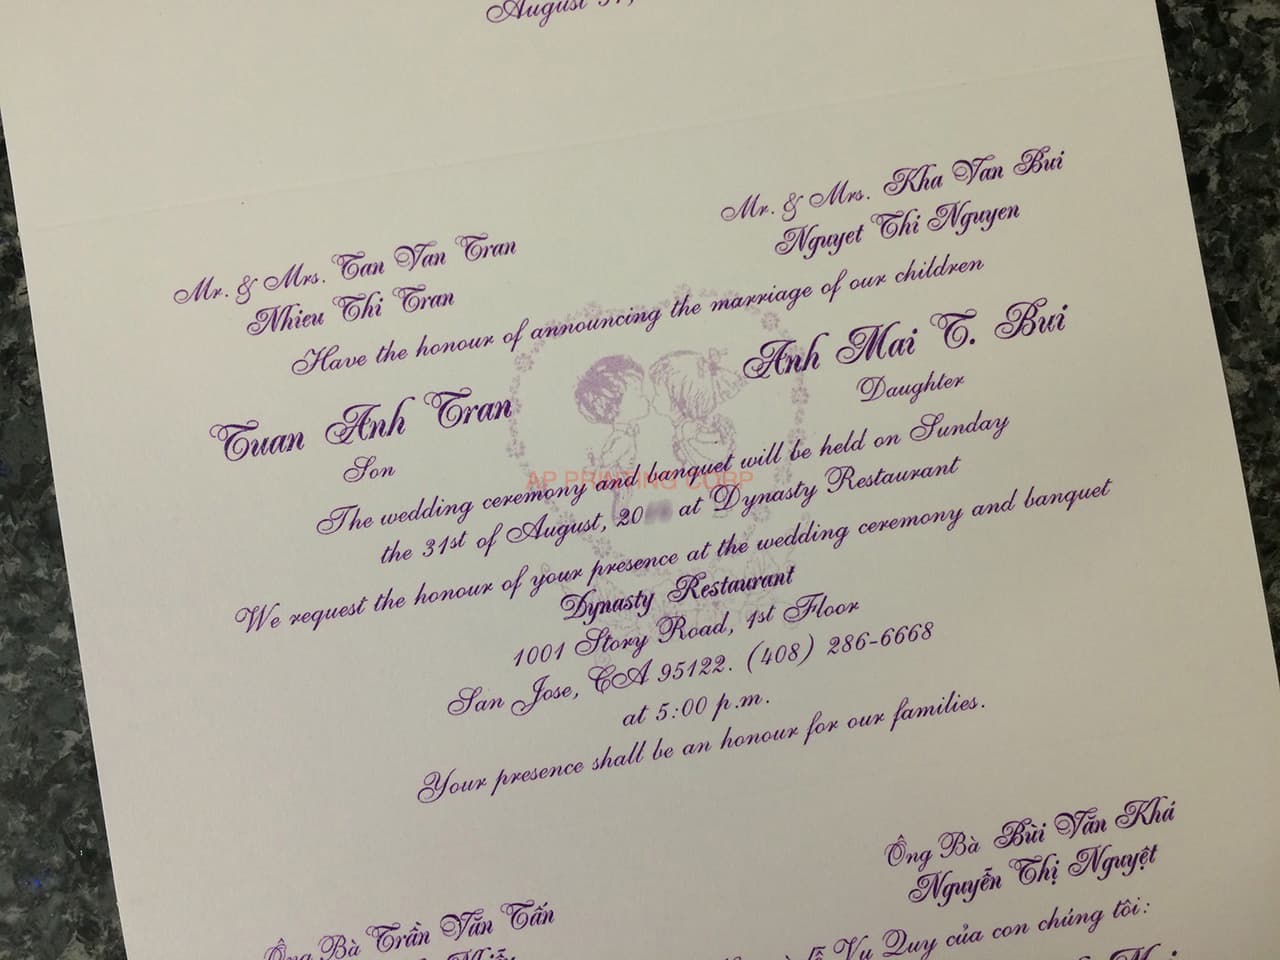 August 31,
Mr. & Mrs. Tan Van Tran
Nhieu Thi Tran
Mr. & Mrs. Kha Van Bui
Nguyet Thi Nguyen
Have the honour of announcing the marriage of our children
Tuan Anh Tran
Son
Anh Mai T. Bui
Daughter
The wedding ceremony and banquet will be held on Sunday
the 31st of August, 20 at Dynasty Restaurant
AP PRINTING CORP
We request the honour of your presence at the wedding ceremony and banquet
Dynasty Restaurant
1001 Story Road, 1st Floor
San Jose, CA 95122. (408) 286-6668
at 5:00 p.m.
Your presence shall be an honour for our families.
Ông Bà Bùi Văn Khá
Nguyễn Thị Nguyệt
Ông Bà Trần Văn Tấn
lễ Vu Quy của con chúng tôi: